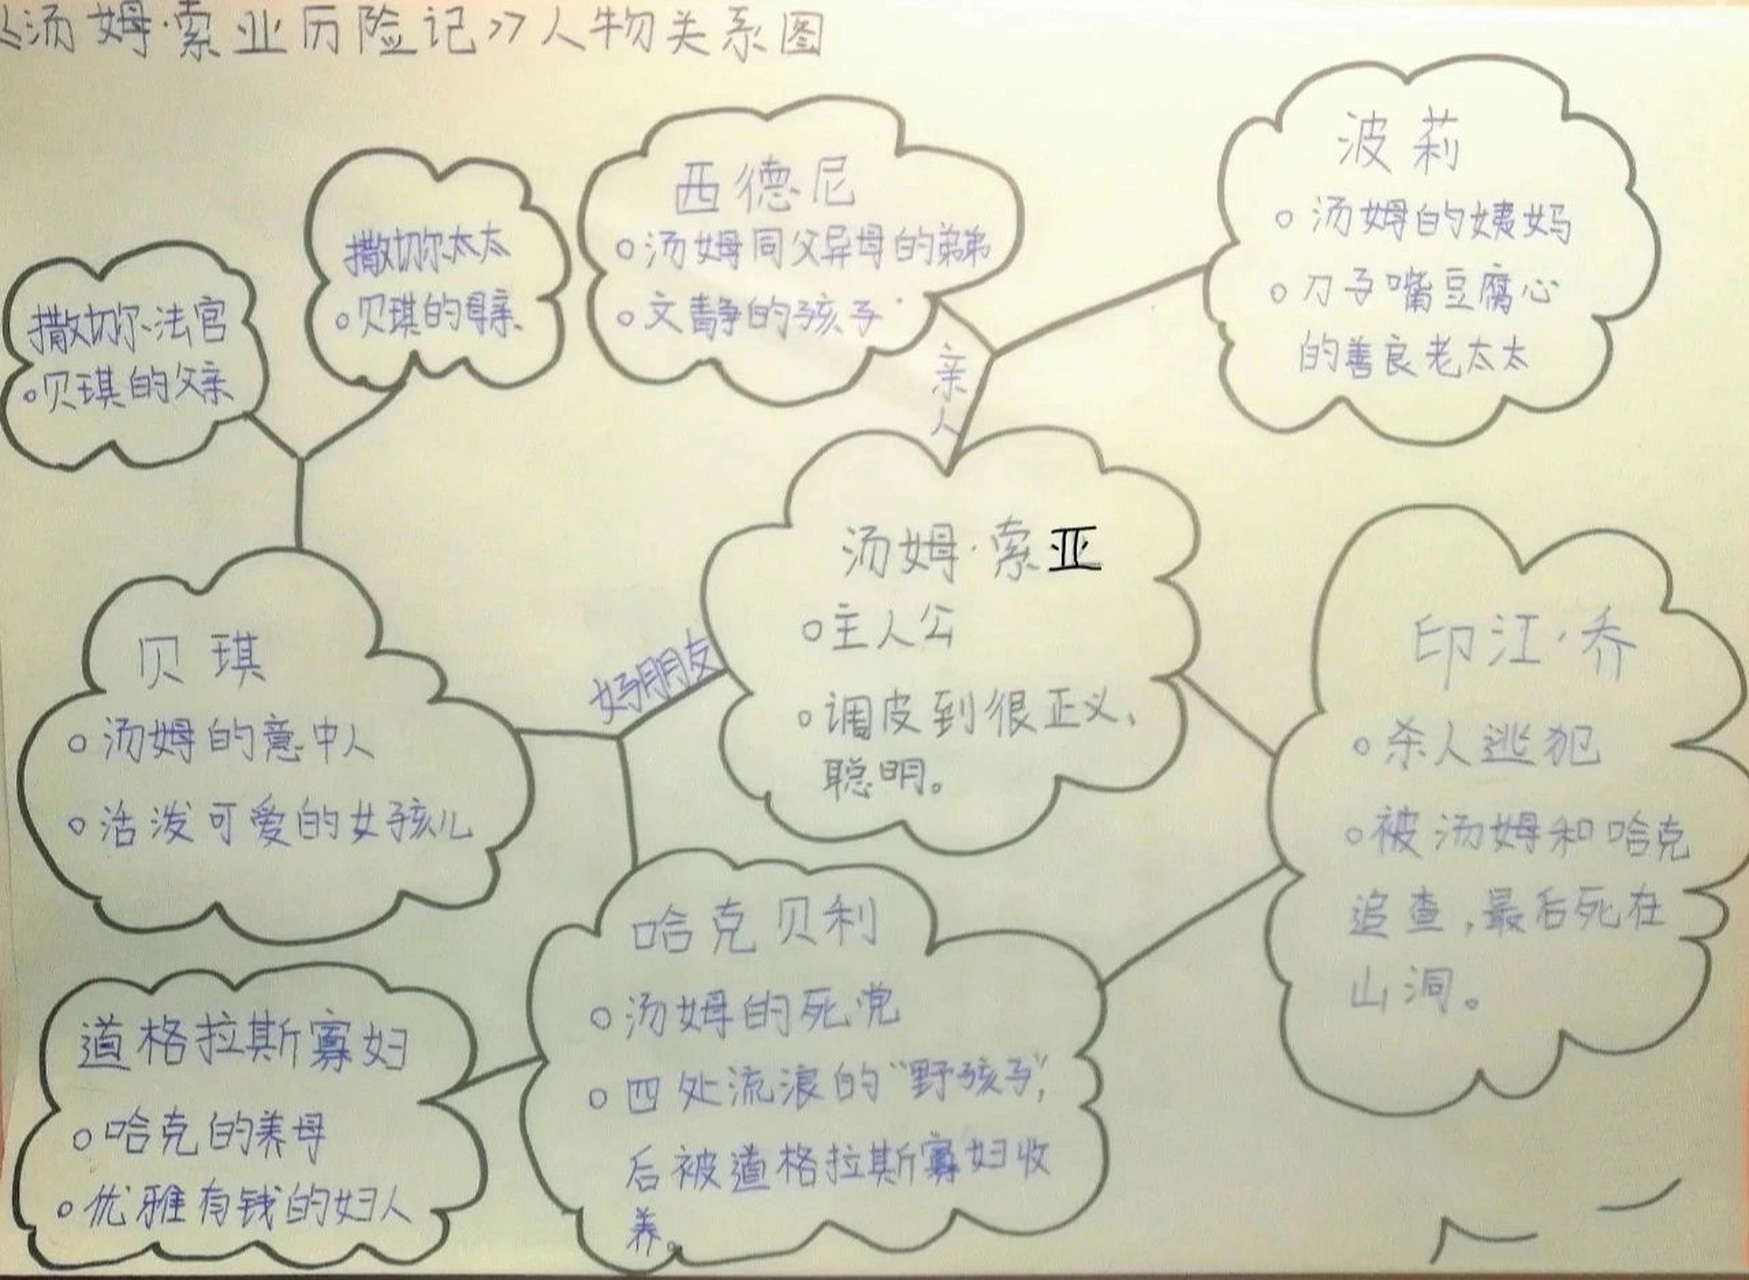 《汤姆·索亚历险记》人物关系图
撒切尔法官
贝琪的父亲
撒切尔太太
贝琪的母亲
西德尼
汤姆同父异母的弟弟
文静的孩子
波莉
汤姆的姨妈
刀子嘴豆腐心
的善良老太太
亲人
汤姆·索亚
主人公
调皮到很正义、
聪明。
好朋友
贝琪
汤姆的意中人
活泼可爱的女孩儿
印江·乔
杀人逃犯
被汤姆和哈克
追查,最后死在
山洞。
哈克贝利
汤姆的死党
四处流浪的“野孩子”,
后被道格拉斯寡妇收
养。
道格拉斯寡妇
哈克的养母
优雅有钱的妇人